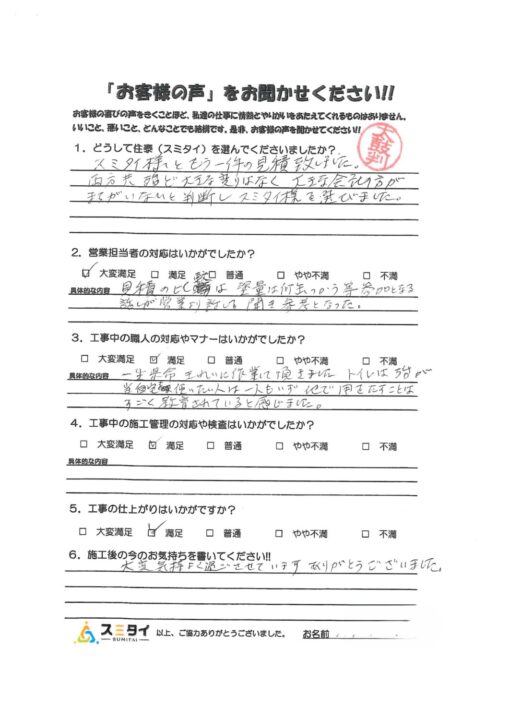 「お客様の声」をお聞かせください!!
お客様の喜びの声をきくことほど、私達の仕事に情熱とやりがいをあたえてくれるものはありません。
いいこと、悪いこと、どんなことでも結構です。是非、お客様の声を聞かせてください!!
太鼓判
1. どうして住泰（スミタイ）を選んでくださいましたか?
スミタイ様ともう一件の見積致しました。
両方共 殆ど大きな差りはなく 大きな会社の方が
まちがいないと判断しスミタイ様を選びました。
2. 営業担当者の対応はいかがでしたか?
☑ 大変満足 □ 満足 □ 普通 □ やや不満 □ 不満
具体的な内容 見積の は 塗量は何缶つかう等参考となる
話しが営業より詳しく聞き参考となった。
3. 工事中の職人の対応やマナーはいかがでしたか?
□ 大変満足 ☑ 満足 □ 普通 □ やや不満 □ 不満
具体的な内容 一生懸命きれいに作業して頂きました トイレは
使った人は一人もいず 他で用をたすことは
すごく教育されていると感じました。
4. 工事中の施工管理の対応や検査はいかがでしたか?
□ 大変満足 ☑ 満足 □ 普通 □ やや不満 □ 不満
具体的な内容
5. 工事の仕上がりはいかがですか?
□ 大変満足 ☑ 満足 □ 普通 □ やや不満 □ 不満
6. 施工後の今のお気持ちを書いてください!!
大変気持よく過ごさせています ありがとうございました。
スミタイ SUMITAI 以上、ご協力ありがとうございました。 お名前